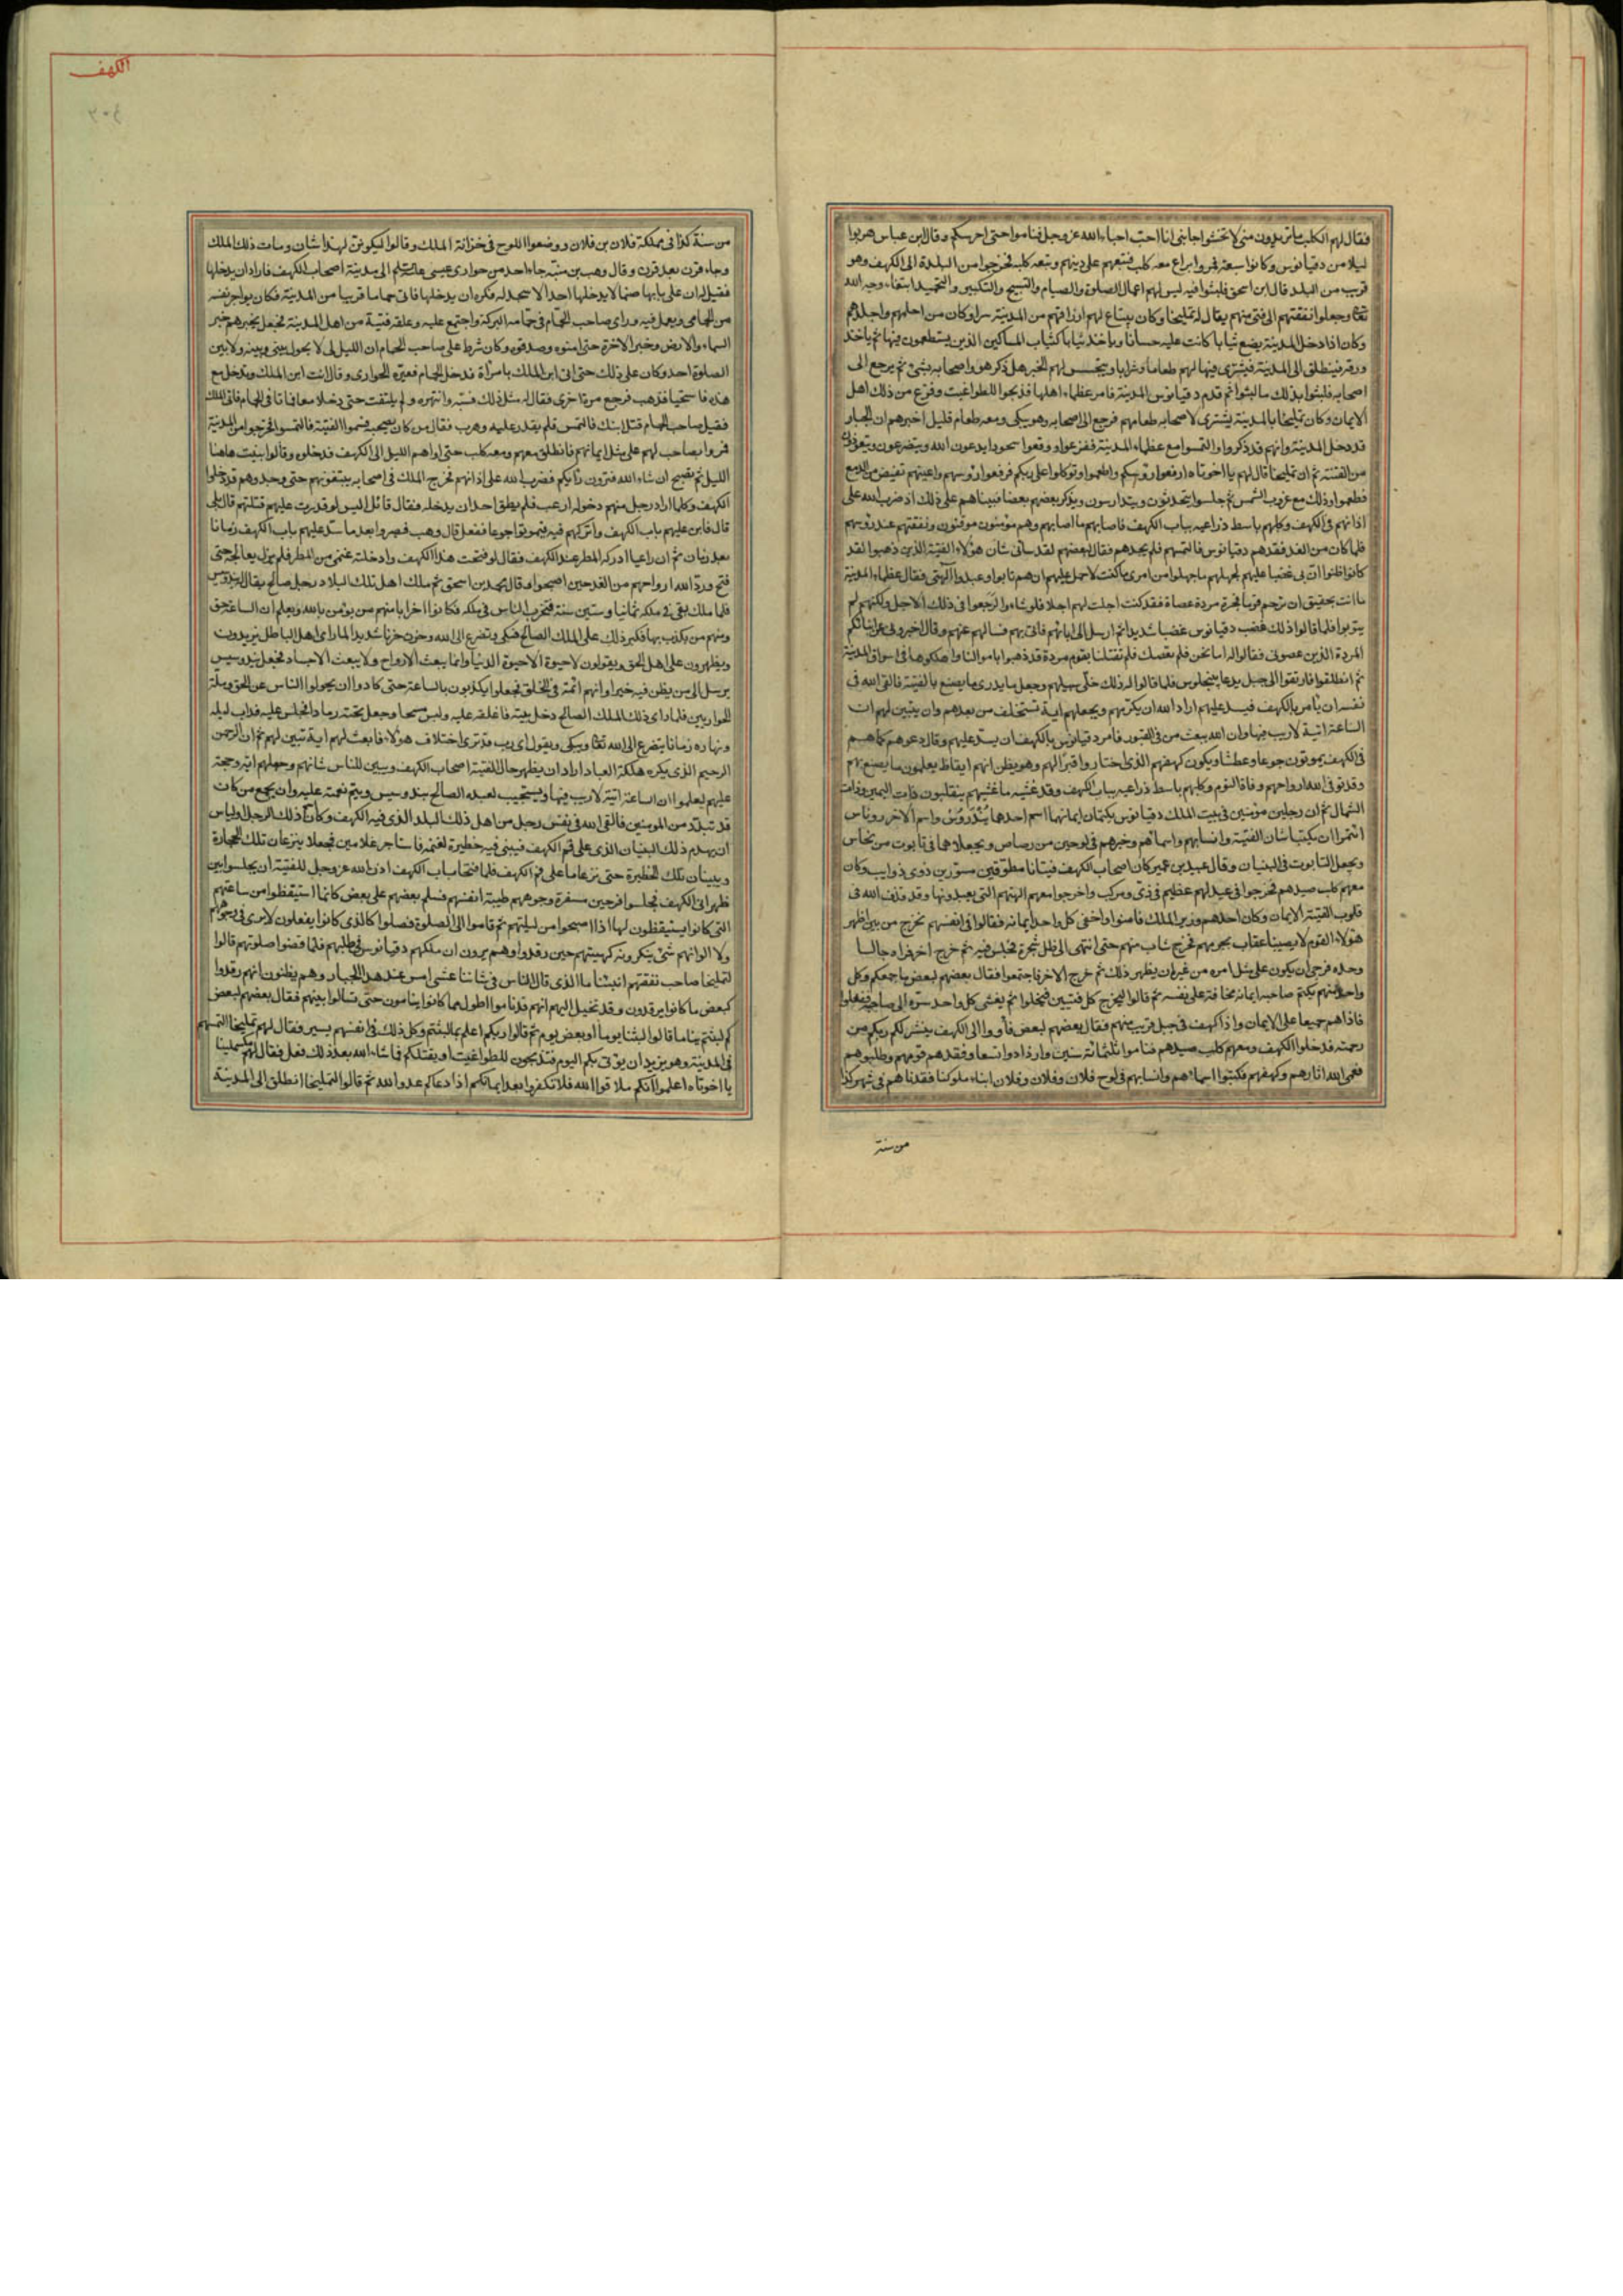 فقال لهم الكلب ما تريدون منى لا تخشوا جانبى انا احب احباء الله عز وجل فناموا حتى احرسكم وقال ابن عباس هربوا
ليلا من دقيانوس وكانوا سبعة فمروا براع معه كلب فتبعهم على دينهم وتبعه كلبه فخرجوا من البلدة الى الكهف وهو
قريب من البلد قال ابن اسحق فلبثوا فيه ليس لهم اعمال الا الصلوة والصيام والتسبيح والتكبير والتحميد ابتغاء وجه الله
تعالى وجعلوا نفقتهم الى فتى منهم يقال له تمليخا وكان يبتاع لهم ارزاقهم من المدينة سرا وكان من احلمهم واجلدهم
وكان اذا دخل المدينة يضع ثيابا كانت عليه حسانا وياخذ ثيابا كثياب المساكين الذين يستطعمون فيها ثم ياخذ
ورقه فينطلق الى المدينة فيشترى فيها لهم طعاما وشرابا ويتجسس لهم الخبر هل ذكر هو واصحابه بشئ ثم يرجع الى
اصحابه فلبثوا بذلك ما لبثوا ثم قدم دقيانوس المدينة فامر عظماء اهلها فذبحوا للطواغيت وفزع من ذلك اهل
الايمان وكان تمليخا بالمدينة يشترى لاصحابه طعامهم فرجع الى اصحابه وهو يبكى ومعه طعام قليل اخبرهم ان الجبار
قد دخل المدينة وانهم قد ذكروا والتمسوا مع عظماء المدينة ففزعوا ووقعوا سجودا يدعون الله ويتضرعون ويتعوذون
من الفتنة ثم ان تمليخا قال لهم يا اخوتاه ارفعوا رؤسكم واطعموا وتوكلوا على ربكم فرفعوا رؤسهم واعينهم تفيض من الدمع
فطعموا وذلك مع غروب الشمس ثم جلسوا يتحدثون ويتدارسون ويذكر بعضهم بعضا فبيناهم على ذلك اذ ضرب الله على
اذانهم فى الكهف وكلبهم باسط ذراعيه بباب الكهف فاصابهم ما اصابهم وهم مؤمنون موقنون ونفقتهم عند رؤسهم
فلما كان من الغد فقدهم دقيانوس فالتمسهم فلم يجدهم فقال لبعضهم لقد سانى شان هؤلاء الفتية الذين ذهبوا لقد
كانوا ظنوا ان بى غضبا عليهم لجهلهم ما جهلوا من امرى ما كنت لاحمل عليهم ان هم تابوا وعبدوا آلهتى فقال عظماء المدينة
ما انت بحقيق ان ترحم قوما فجرة مردة عصاة فقد كنت اجلت لهم اجلا فلو شاءوا لرجعوا فى ذلك الاجل ولكنهم لم
يتوبوا فلما قالوا ذلك غضب دقيانوس غضبا شديدا ثم ارسل الى ابائهم فاتى بهم فسالهم عنهم وقال اخبرونى عن ابنائكم
المردة الذين عصونى فقالوا له اما نحن فلم نعصك فلم تقتلنا بقوم مردة قد ذهبوا باموالنا واهلكوها فى اسواق المدينة
ثم انطلقوا فارتقوا الى جبل يدعا بنجلوس فلما قالوا له ذلك خلى سبيلهم وجعل ما يدرى ما يصنع بالفتية فالقى الله فى
نفسه ان يامر بالكهف فيسد عليهم اراد الله ان يكرمهم ويجعلهم اية تستخلف من بعدهم وان يتبين لهم ان
الساعة اتية لا ريب فيها وان الله يبعث من فى القبور فامر دقيانوس بالكهف ان يسد عليهم وقال دعوهم كما هم
فى الكهف يموتون جوعا وعطشا ويكون كهفهم الذى اختاروا قبرا لهم وهو يظن انهم ايقاظ يعلمون ما يصنع بهم
وقد توفى الله ارواحهم وفاة النوم وكلبهم باسط ذراعيه بباب الكهف وقد غشيه ما غشيهم يتقلبون ذات اليمين وذات
الشمال ثم ان رجلين مؤمنين فى بيت الملك دقيانوس يكتمان ايمانهما اسم احدهما بيدروس واسم الاخر روناس
ائتمرا ان يكتبا شان الفتية وانسابهم واسمائهم وخبرهم فى لوحين من رصاص ويجعلاهما فى تابوت من نحاس
ويجعلا التابوت فى البنيان وقال عبيد بن عمير كان اصحاب الكهف فتيانا مطوقين مسورين ذوى ذوايب وكان
معهم كلب صيدهم فخرجوا فى عيد لهم عظيم فى زى ومركب واخرجوا معهم الهتهم التى يعبدونها وقد قذف الله فى
قلوب الفتية الايمان وكان احدهم وزير الملك فامنوا واخفى كل واحد ايمانه فقالوا فى انفسهم نخرج من بين اظهر
هؤلاء القوم لا يصيبنا عقاب بجرمهم فخرج شاب منهم حتى انتهى الى ظل شجرة فجلس فيه ثم خرج اخر فراه جالسا
وحده فرجى ان يكون على مثل امره من غير ان يظهر ذلك ثم خرج الاخر فاجتمعوا فقال بعضهم لبعض ما جمعكم وكل
واحد منهم يكتم صاحبه ايمانه مخافة على نفسه ثم قالوا ليخرج كل فتيين فيخلوا ثم يفشى كل واحد سره الى صاحبه ففعلوا
فاذاهم جميعا على الايمان واذا كهف فى جبل قريب منهم فقال بعضهم لبعض فأووا الى الكهف ينشر لكم ربكم من
رحمته فدخلوا الكهف ومعهم كلب صيدهم فناموا ثلثمائة سنين وازدادوا تسعا وفقدهم قومهم وطلبوهم
فعمى الله اثارهم وكهفهم فكتبوا اسماءهم وانسابهم فى لوح فلان وفلان وفلان ابناء ملوكنا فقدناهم فى شهر كذا
من سنة
الكهف
٣٠٤
من سنة كذا فى مملكة فلان بن فلان ووضعوا اللوح فى خزانة الملك وقالوا ليكونن لهذا شان ومات ذلك الملك
وجاء قرن بعد قرن وقال وهب بن منبه جاء احد من حوارى عيسى الى مدينة اصحاب الكهف فاراد ان يدخلها
فقيل له ان على بابها صنما لا يدخلها احد الا سجد له فكره ان يدخلها فاتى حماما قريبا من المدينة فكان يواجر نفسه
من الحمامى ويعمل فيه وراى صاحب الحمام فى حمامه البركة واجتمع عليه وعلقه فتية من اهل المدينة فجعل يخبرهم خبر
السماء والارض وخبر الاخرة حتى امنوه وصدقوه وكان شرط على صاحب الحمام ان الليل لى لا يحول بينى وبينه ولا بين
الصلوة احد وكان على ذلك حتى اتى ابن الملك بامرأة فدخل الحمام فعيره الحوارى وقال انت ابن الملك وتدخل مع
هذه فاستحيا فذهب فرجع مرة اخرى فقال له مثل ذلك فسبه وانتهره ولم يلتفت حتى دخلا معا فماتا فى الحمام فاتى الملك
فقيل صاحب الحمام قتل ابنك فالتمس فلم يقدر عليه وهرب فقال من كان يصحبه فسموا الفتية فالتمسوا فخرجوا من المدينة
فمروا بصاحب لهم على مثل ايمانهم فانطلق معهم ومعه كلب حتى اواهم الليل الى الكهف فدخلوه وقالوا نبيت هاهنا
الليل ثم نصبح ان شاء الله فترون رأيكم فضرب الله على اذانهم فخرج الملك فى اصحابه يبتغونهم حتى وجدوهم قد دخلوا
الكهف وكلما اراد رجل منهم دخوله ارعب فلم يطق احد ان يدخله فقال قائل اليس لو قدرت عليهم قتلتهم قال بلى
قال فابن عليهم باب الكهف واتركهم فيه فيموتوا جوعا ففعل قال وهب فصبروا بعد ما سد عليهم باب الكهف زمانا
بعد زمان ثم ان راعيا ادركه المطر عند الكهف فقال لو فتحت هذا الكهف وادخلته غنمى من المطر فلم يزل يعالجه حتى
فتح ورد الله ارواحهم من الغد حين اصبحوا وقال محمد بن اسحق ثم ملك اهل تلك البلاد رجل صالح يقال له بيدروس
فلما ملك بقى فى ملكه ثمانيا وستين سنة فتحزب الناس فى ملكه فكانوا احزابا منهم من يؤمن بالله ويعلم ان الساعة حق
ومنهم من يكذب بها فكبر ذلك على الملك الصالح فبكى وتضرع الى الله وحزن حزنا شديدا لما راى اهل الباطل يزيدون
ويظهرون على اهل الحق ويقولون لا حيوة الا حيوة الدنيا وانما يبعث الارواح ولا يبعث الاجساد فجعل بيدوسيس
يرسل الى من يظن فيه خيرا وانهم ائمة فى الخلق فجعلوا يكذبون بالساعة حتى كادوا ان يحولوا الناس عن الحق وملة
الحواريين فلما راى ذلك الملك الصالح دخل بيته فاغلقه عليه ولبس مسحا وجعل تحته رمادا فجلس عليه فداب ليله
ونهاره زمانا يتضرع الى الله تعالى ويبكى ويقول اى رب قد ترى اختلاف هؤلاء فابعث لهم اية تبين لهم ثم ان الرحمن
الرحيم الذى يكره هلكة العباد اراد ان يظهر حال الفتية اصحاب الكهف ويبين للناس شانهم وجعلهم اية وحجة
عليهم ليعلموا ان الساعة اتية لا ريب فيها ويستجيب لعبده الصالح بيدوسيس ويتم نعمته عليه وان يجمع من كان
قد تبدد من المومنين فالقى الله فى نفس رجل من اهل ذلك البلد الذى فيه الكهف وكان ذلك الرجل اولياس
ان يهدم ذلك البنيان الذى على فم الكهف فيبنى فيه حظيرة لغنمه فاستاجر غلامين فجعلا ينزعان تلك الحجارة
ويبنيان تلك الحظيرة حتى نزعا ما على فم الكهف فلما فتحا باب الكهف اذن الله عز وجل للفتية ان يجلسوا بين
ظهرانى الكهف فجلسوا فرحين مسفرة وجوههم طيبة انفسهم فسلم بعضهم على بعض كانما استيقظوا من ساعتهم
التى كانوا يستيقظون لها اذا اصبحوا من ليلتهم ثم قاموا الى الصلوة فصلوا كالذى كانوا يفعلون لا يرى فى وجوههم
ولا الوانهم شئ ينكرونه كهيئتهم حين رقدوا وهم يرون ان ملكهم دقيانوس فى طلبهم فلما قضوا صلوتهم قالوا
لتمليخا صاحب نفقتهم انبئنا ما الذى قال الناس فى شاننا عشى امس عند هذا الجبار وهم يظنون انهم رقدوا
كبعض ما كانوا يرقدون وقد تخيل اليهم انهم قد ناموا اطول مما كانوا ينامون حتى تسالوا بينهم فقال بعضهم لبعض
كم لبثتم نياما قالوا لبثنا يوما أو بعض يوم ثم قالوا ربكم اعلم بما لبثتم وكل ذلك فى انفسهم يسير فقال لهم تمليخا التمستم
فى المدينة وهو يريد ان يؤتى بكم اليوم فتذبحون للطواغيت او يقتلكم فما شاء الله بعد ذلك فعل فقال لهم مكسلمينا
يا اخوتاه اعلموا أنكم ملاقوا الله فلا تكفروا بعد ايمانكم اذا دعاكم عدو الله ثم قالوا لتمليخا انطلق الى المدينة